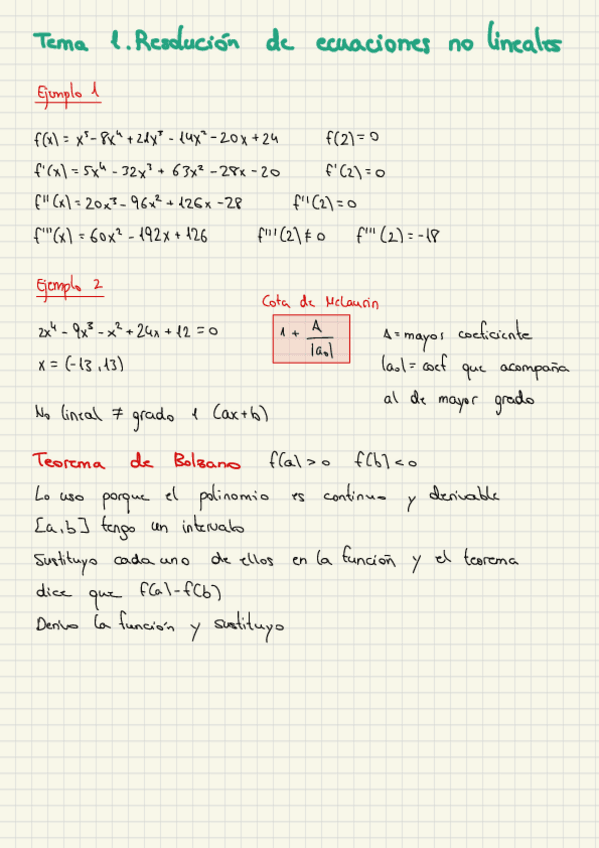 Tema 1. Resolución de ecuaciones no lineales
Ejemplo 1
f(x) = x⁵ - 8x⁴ + 21x³ - 14x² - 20x + 24 f(2) = 0
f'(x) = 5x⁴ - 32x³ + 63x² - 28x - 20 f'(2) = 0
f''(x) = 20x³ - 96x² + 126x - 28 f''(2) = 0
f'''(x) = 60x² - 192x + 126 f'''(2) ≠ 0 f'''(2) = -18
Ejemplo 2
Cota de McLaurin
2x⁴ - 9x³ - x² + 24x + 12 = 0
1 + A / |a₀|
A = mayor coeficiente
x = (-13, 13)
|a₀| = coef que acompaña
al de mayor grado
No lineal ≠ grado 1 (ax+b)
Teorema de Bolzano f(a) > 0 f(b) < 0
Lo uso porque el polinomio es continuo y derivable
[a,b] tengo un intervalo
Sustituyo cada uno de ellos en la función y el teorema
dice que f(a)-f(b)
Derivo la función y sustituyo